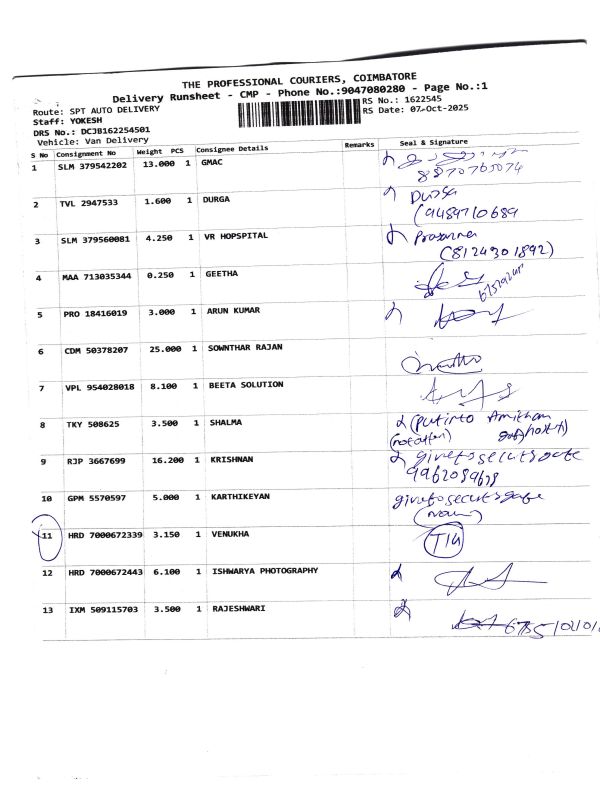 THE PROFESSIONAL COURIERS, COIMBATORE
Delivery Runsheet - CMP - Phone No.:9047080280 - Page No.:1
Route: SPT AUTO DELIVERY
RS No.: 1622545
Staff: YOKESH
RS Date: 07-Oct-2025
DRS No.: DCJB162254501
Vehicle: Van Delivery
S No Consignment No Weight PCS Consignee Details Remarks Seal & Signature
1 SLM 379542202 13.000 1 GMAC
8870765074
2 TVL 2947533 1.600 1 DURGA Durga
(9489710689
3 SLM 379560081 4.250 1 VR HOPSPITAL Prasanna
(8124301892)
4 MAA 713035344 0.250 1 GEETHA
5 PRO 18416019 3.000 1 ARUN KUMAR
6 CDM 50378207 25.000 1 SOWNTHAR RAJAN
7 VPL 954028018 8.100 1 BEETA SOLUTION
8 TKY 508625 3.500 1 SHALMA
9 RJP 3667699 16.200 1 KRISHNAN
10 GPM 5570597 5.000 1 KARTHIKEYAN
11 HRD 7000672339 3.150 1 VENUKHA
12 HRD 7000672443 6.100 1 ISHWARYA PHOTOGRAPHY
13 IXM 509115703 3.500 1 RAJESHWARI